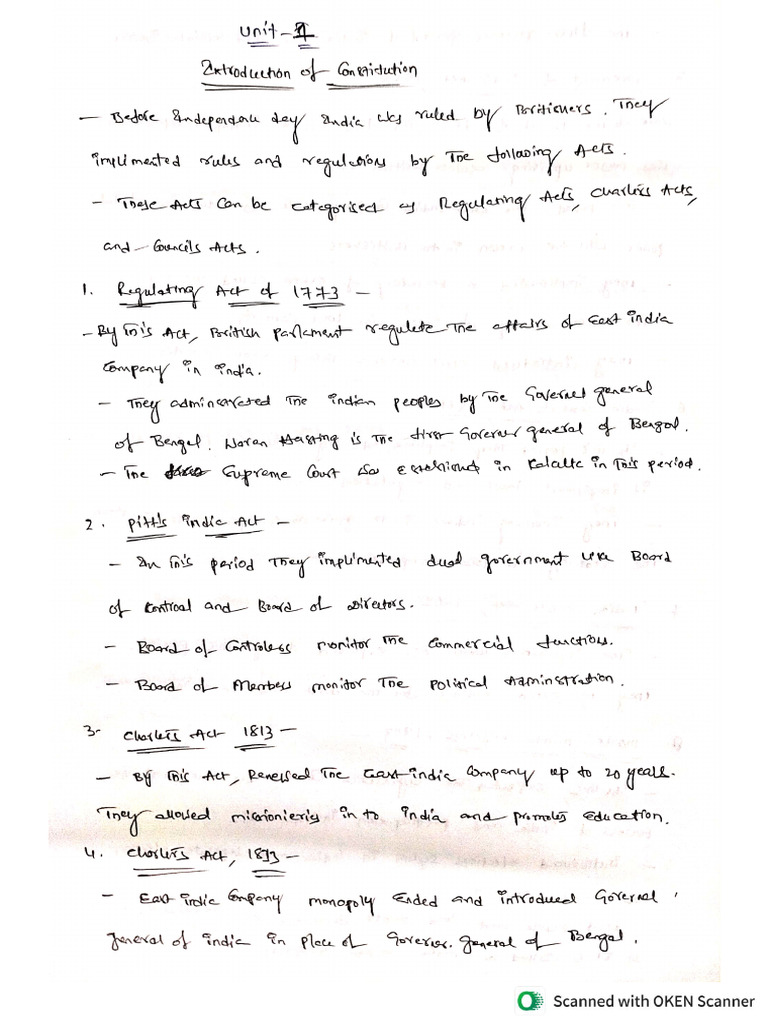 Unit - 1
Introduction of Constidution
- Before Independence day India was ruled by Boritishers. They
implimented rules and regulations by The following Acts.
- These Acts can be categorised as Regulating Acts, Charters Acts,
and Councils Acts.
1. Regulating Act of 1773 -
- By This Act, British parlament regulete The affairs of East india
Company in india.
- They adminsrated The indian peoples by The Governer general
of Bengal. Waran Hasting is The first Governer general of Bengal.
- The Supreme Court also Establishied in Kalatta in This period.
2. Pitt's india Act -
- In This period They implimented dual government like Board
of Controal and Board of Directors.
- Board of Controless monitor The Commercial functions.
- Board of Members monitor The Political Adminstration.
3- Charters Act 1813 -
- By This Act, Renewed The East india Company up to 20 years.
They allowed missionieris in to india and promotes Education.
4. Charters Act, 1833 -
- East india Company monopoly Ended and introduced Governal
general of india in place of Governer general of Bengal.
Scanned with OKEN Scanner